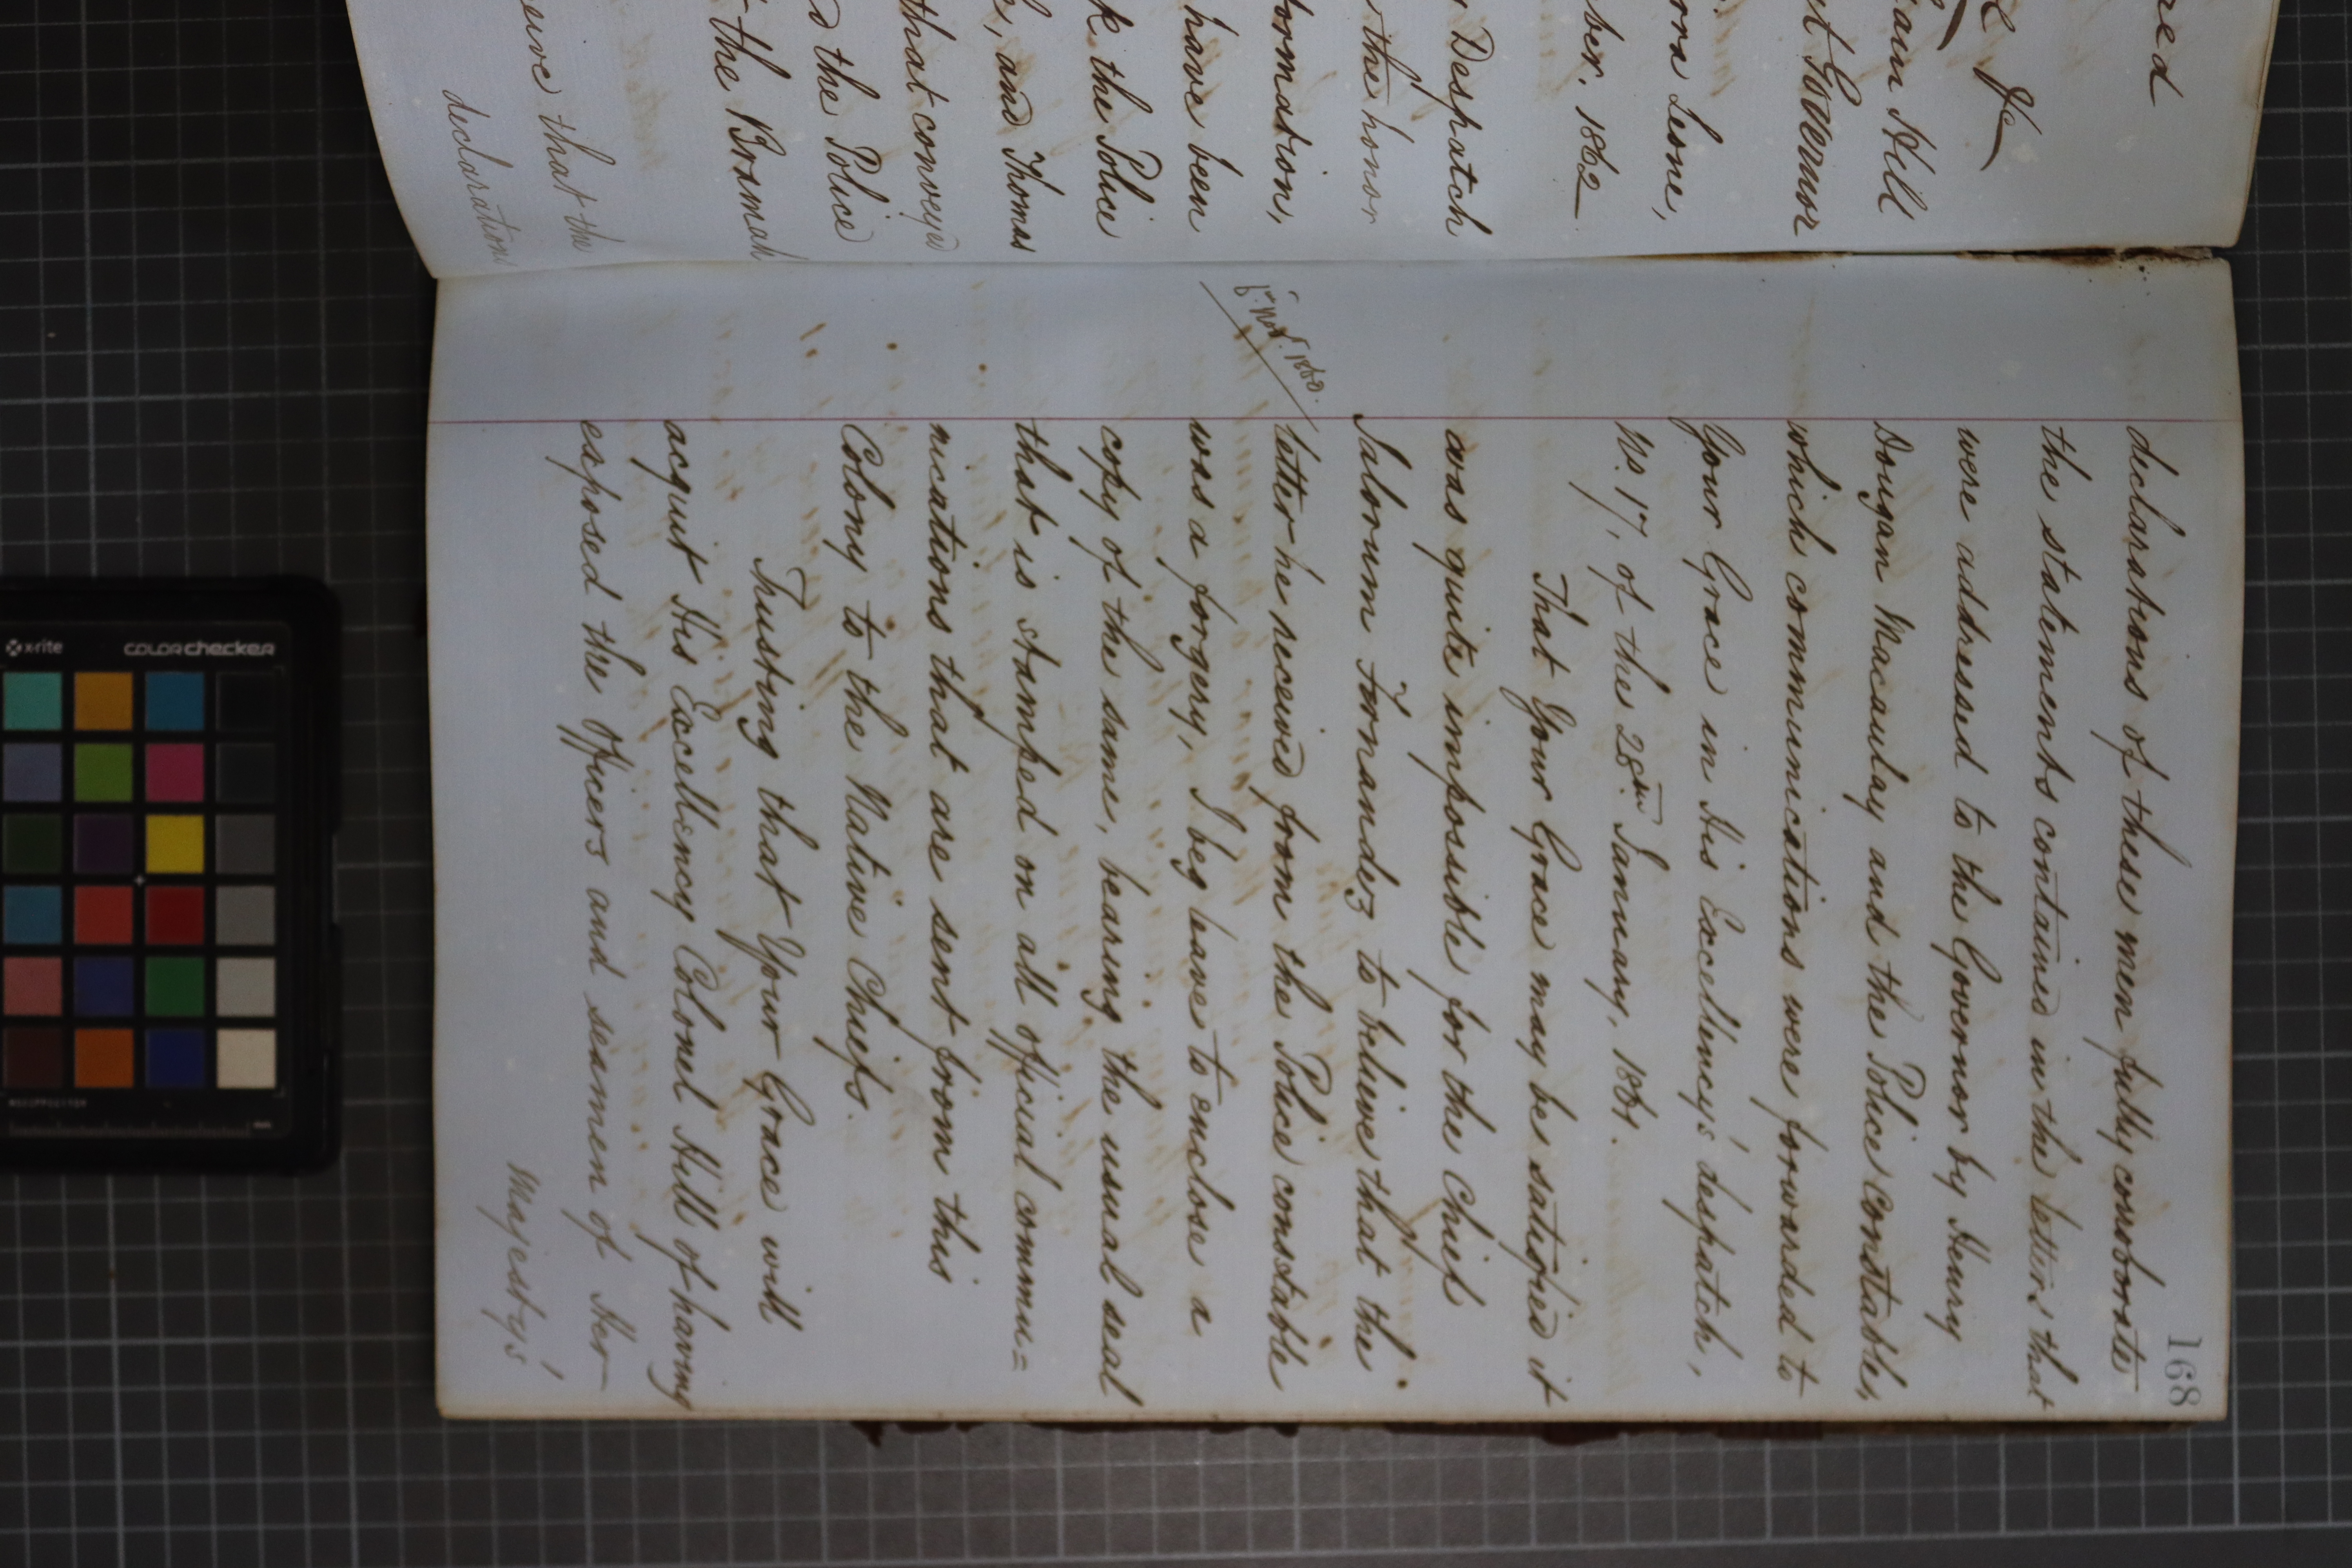 red
&c
iam Hill
nt Governor
erra Leone,
ber. 1862
Despatch
the honor
formation,
have been
k the Police
and Thomas
that conveyed
d the Police
the Bosmah
serve that the
declarations
168
declarations of these men fully corroborate
the statements contained in the letters that
were addressed to the Governor by Henry
Dougan Macaulay and the Police Constable,
which communications were forwarded to
Your Grace in His Excellency's despatch,
No. 17, of the 28th January, 1861.
That Your Grace may be satisfied it
was quite impossible for the Chief
Salorum Fernandez to believe that the
letter he received from the Police constable
1860.
was a forgery, I beg leave to enclose a
copy of the same, bearing the usual seal
that is stamped on all official commu=
nications that are sent from this
Colony to the Native Chiefs.
Trusting that Your Grace will
acquit His Excellency Colonel Hill of having
exposed the Officers and seamen of Her
Majesty's
x-rite
colorchecker